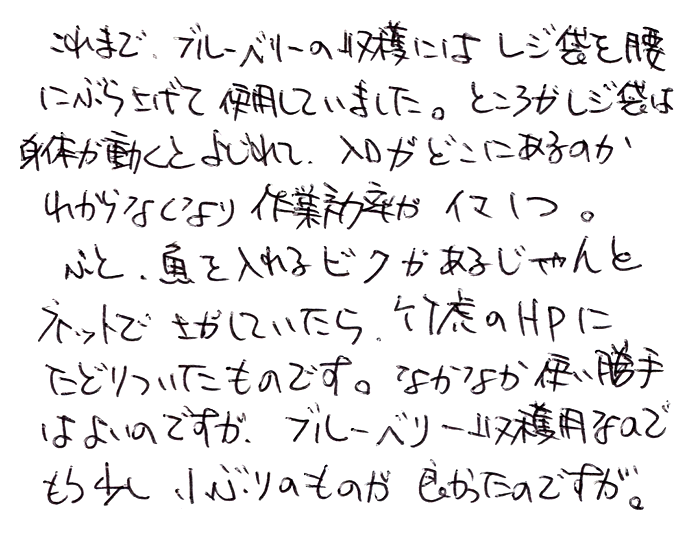 これまで、ブルーベリーの収穫にはレジ袋を腰
にぶら上げて使用していました。ところがレジ袋は
身体が動くとよじれて、入口がどこにあるのか
わからなくなり作業効率がイマ1つ。
ふと、魚を入れるビクがあるじゃんと
ネットでさがしていたら、竹虎のHPに
たどりついたものです。なかなか使い勝手
はよいのですが、ブルーベリー収穫用なので
もう少し小ぶりのものが良かったのですが。